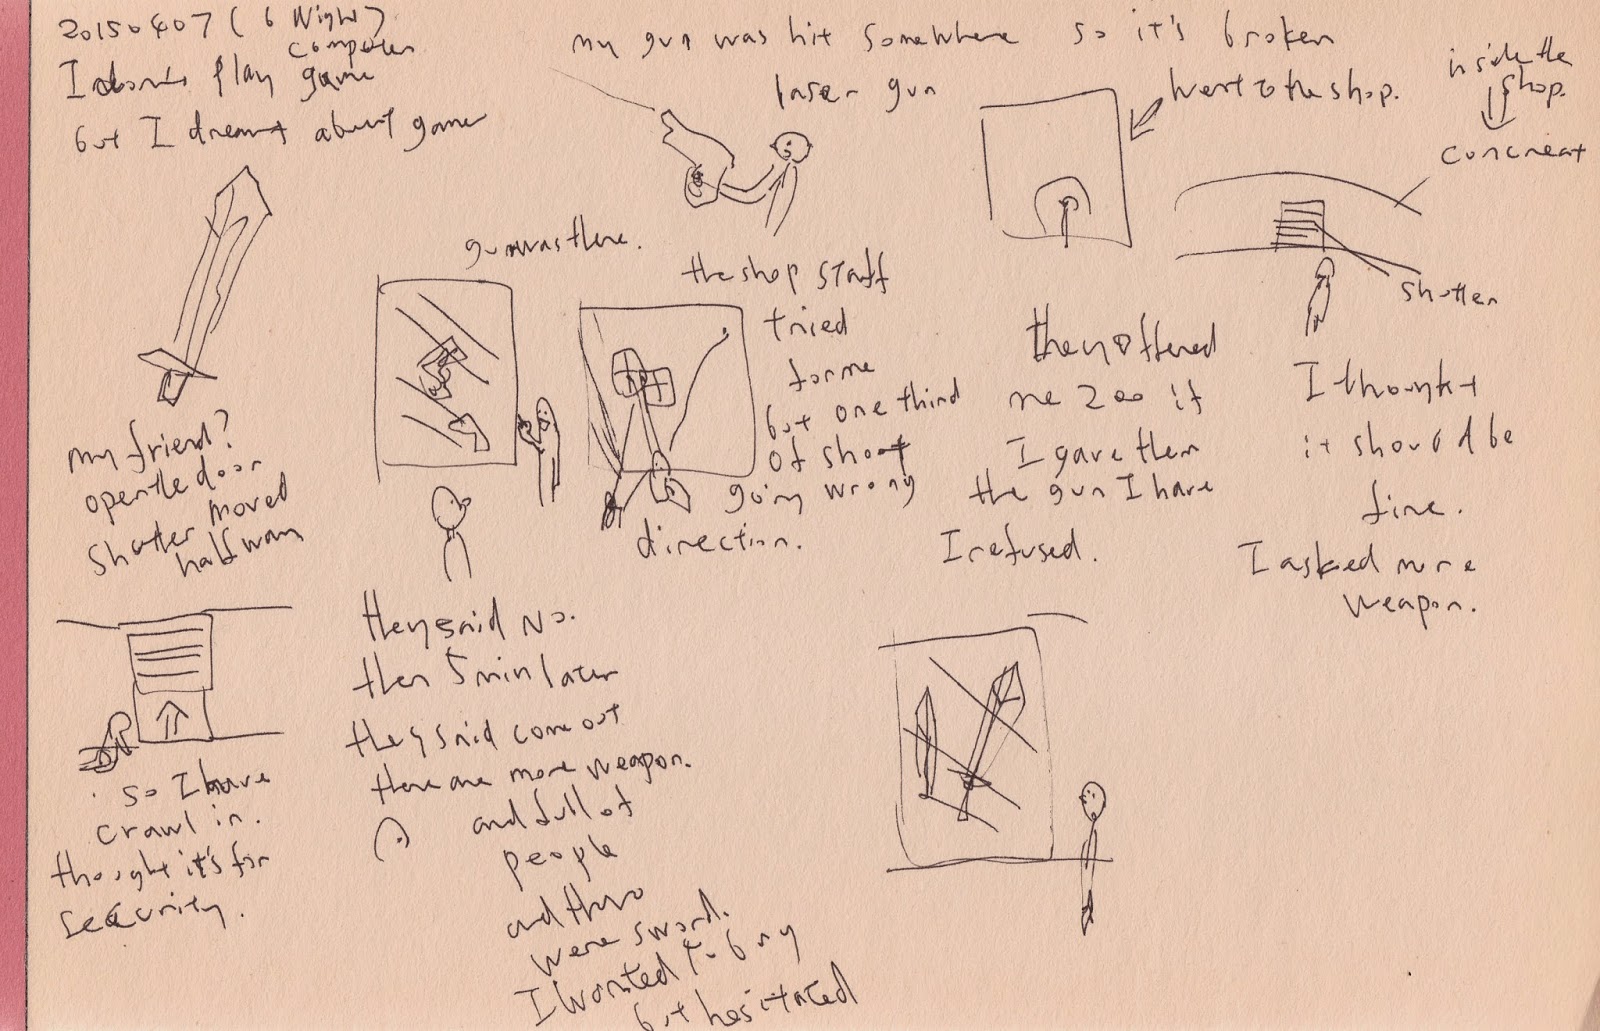 20150407 (6 Night)
computer
I don't play game
but I dreamt about game
my gun was hit somewhere so it's broken
laser gun
went to the shop.
inside the
shop.
concreat
shutter
my friend?
open the door
shutter moved
half way
so I have
crawl in.
thought it's for
security.
gun was there.
the shop staff
tried
for me
but one third
of shoot
going wrong
direction.
they offered
me 200 if
I gave them
the gun I have
I refused.
I thought
it should be
fine.
I asked more
weapon.
they said no.
then 5 min later
they said come out
there are more weapon.
and full of
people
and there
were sword.
I wanted to buy
but hesitated